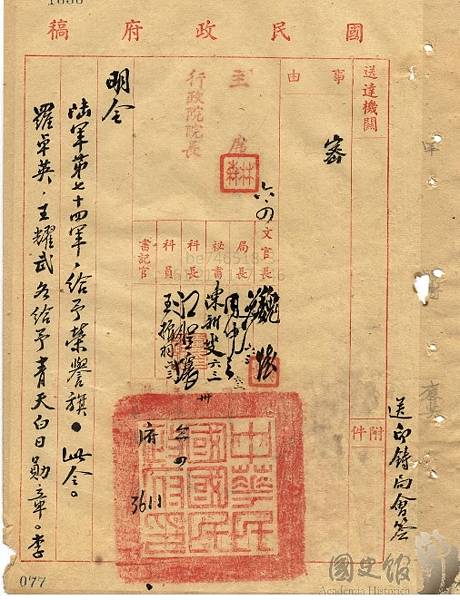 國民政府稿
送達機關
事由
審
主席
行政院院長
林森
六、四
文官長
局長
秘書
科長
科員
書記官
魏懷
附件
送印鑄局會簽
明令
陸軍第七十四軍，給予榮譽旗。此令。
羅卓英、王耀武各給予青天白日勛章。李
中華民國國民政府印
府
3611
077
國史館
Academia Historica